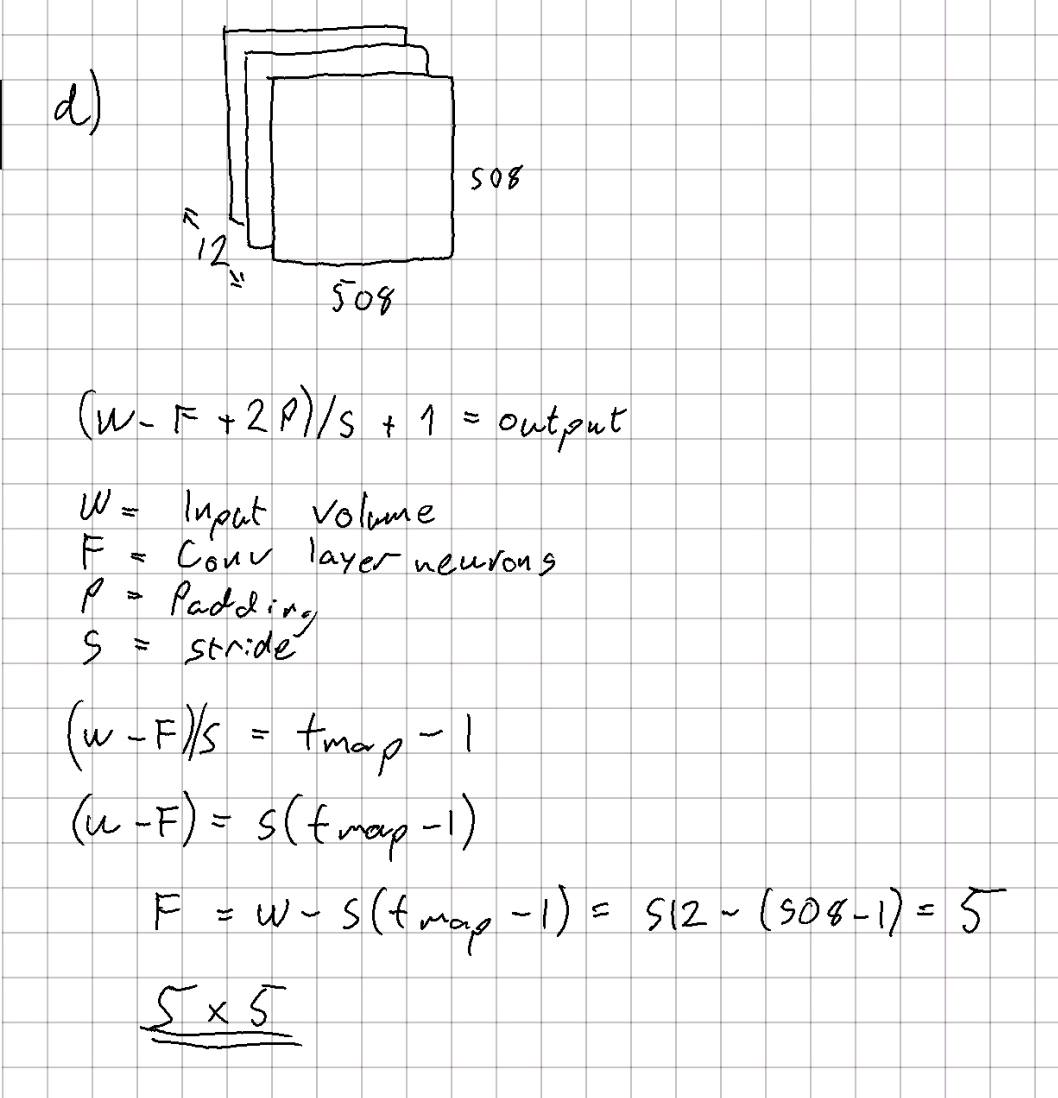 d)
508
12
508
(W - F + 2P)/S + 1 = output
W = Input volume
F = Conv layer neurons
P = Padding
S = stride
(w - F)/S = fmap - 1
(w - F) = S(fmap - 1)
F = W - S(fmap - 1) = 512 - (508 - 1) = 5
5 x 5